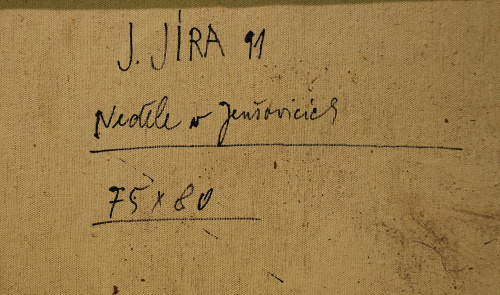 J. JÍRA 91
Neděle v Jenšovicích
75 x 80